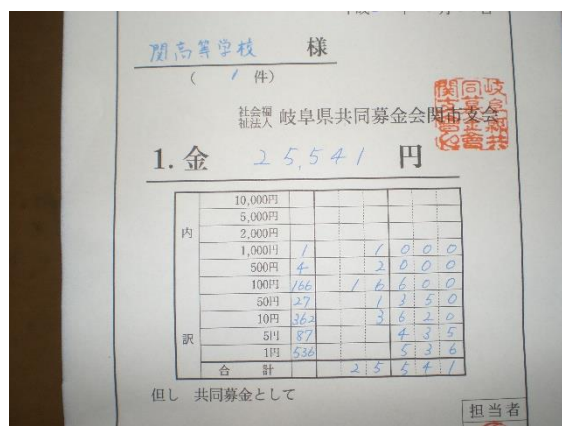 関高等学校 様
( 1 件)
社会福祉法人 岐阜県共同募金会関市支会
1. 金 25,541 円
内訳
10,000円
5,000円
2,000円
1,000円 1 1000
500円 4 2000
100円 166 16600
50円 27 1350
10円 362 3620
5円 87 435
1円 536 536
合計 25541
但し 共同募金として
担当者